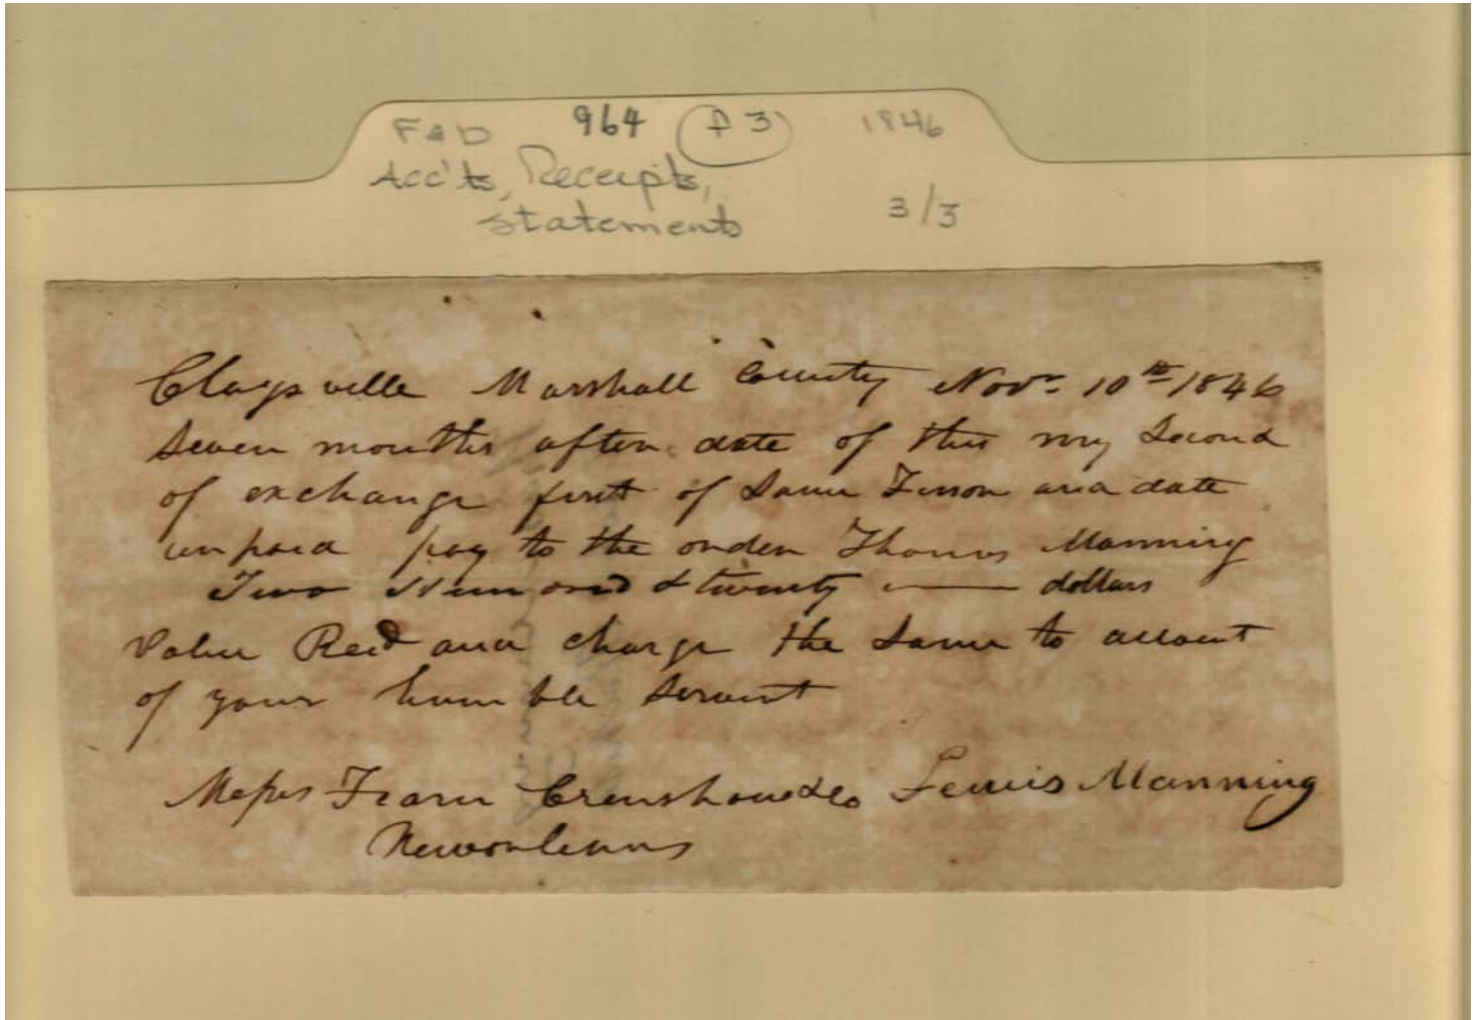 F&D 964 P3 1846
Acc'ts, Receipts,
Statements 3/3
Claysville Marshall County Novr 10th 1846
Seven months after date of this my Second
of exchange first of Same Tenson and date
unpaid pay to the order Thomas Manning
Two Hundred & twenty —— dollars
Value Recd and charge the Same to account
of your humble Servant
Messrs Fearn Crenshaw & Co Lewis Manning
Neworleans